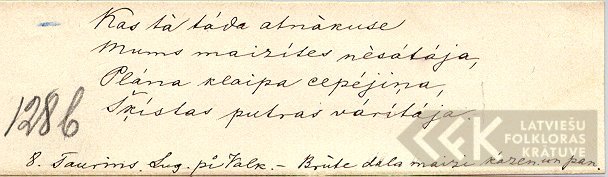 Kas tā tāda atnākuse
Mums maizītes nēsātāja,
Plāna klaipa cepējiņa,
Šķistas putras vārītāja.
1286
8. Tauriņs. Lug. pi Valk. – Brūte dala maizi kāzen. un pan.
LATVIEŠU
FOLKLORAS
KRĀTUVE